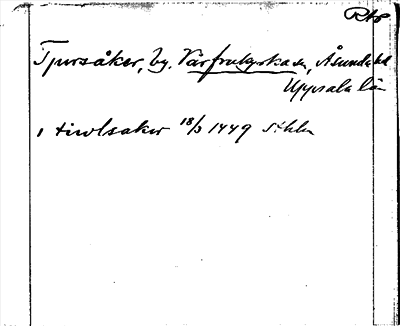 Tjursåker, by. Vårfrukyrka sn, Åsunda hd
Uppsala län
i tiwlsaker 18/3 1449 Sthlm